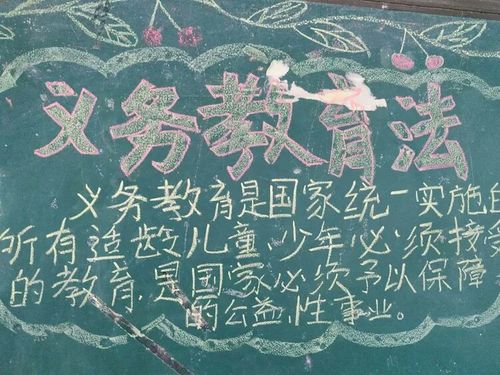 义务教育法
义务教育是国家统一实施的
所有适龄儿童、少年必须接受
的教育,是国家必须予以保障
的公益性事业。